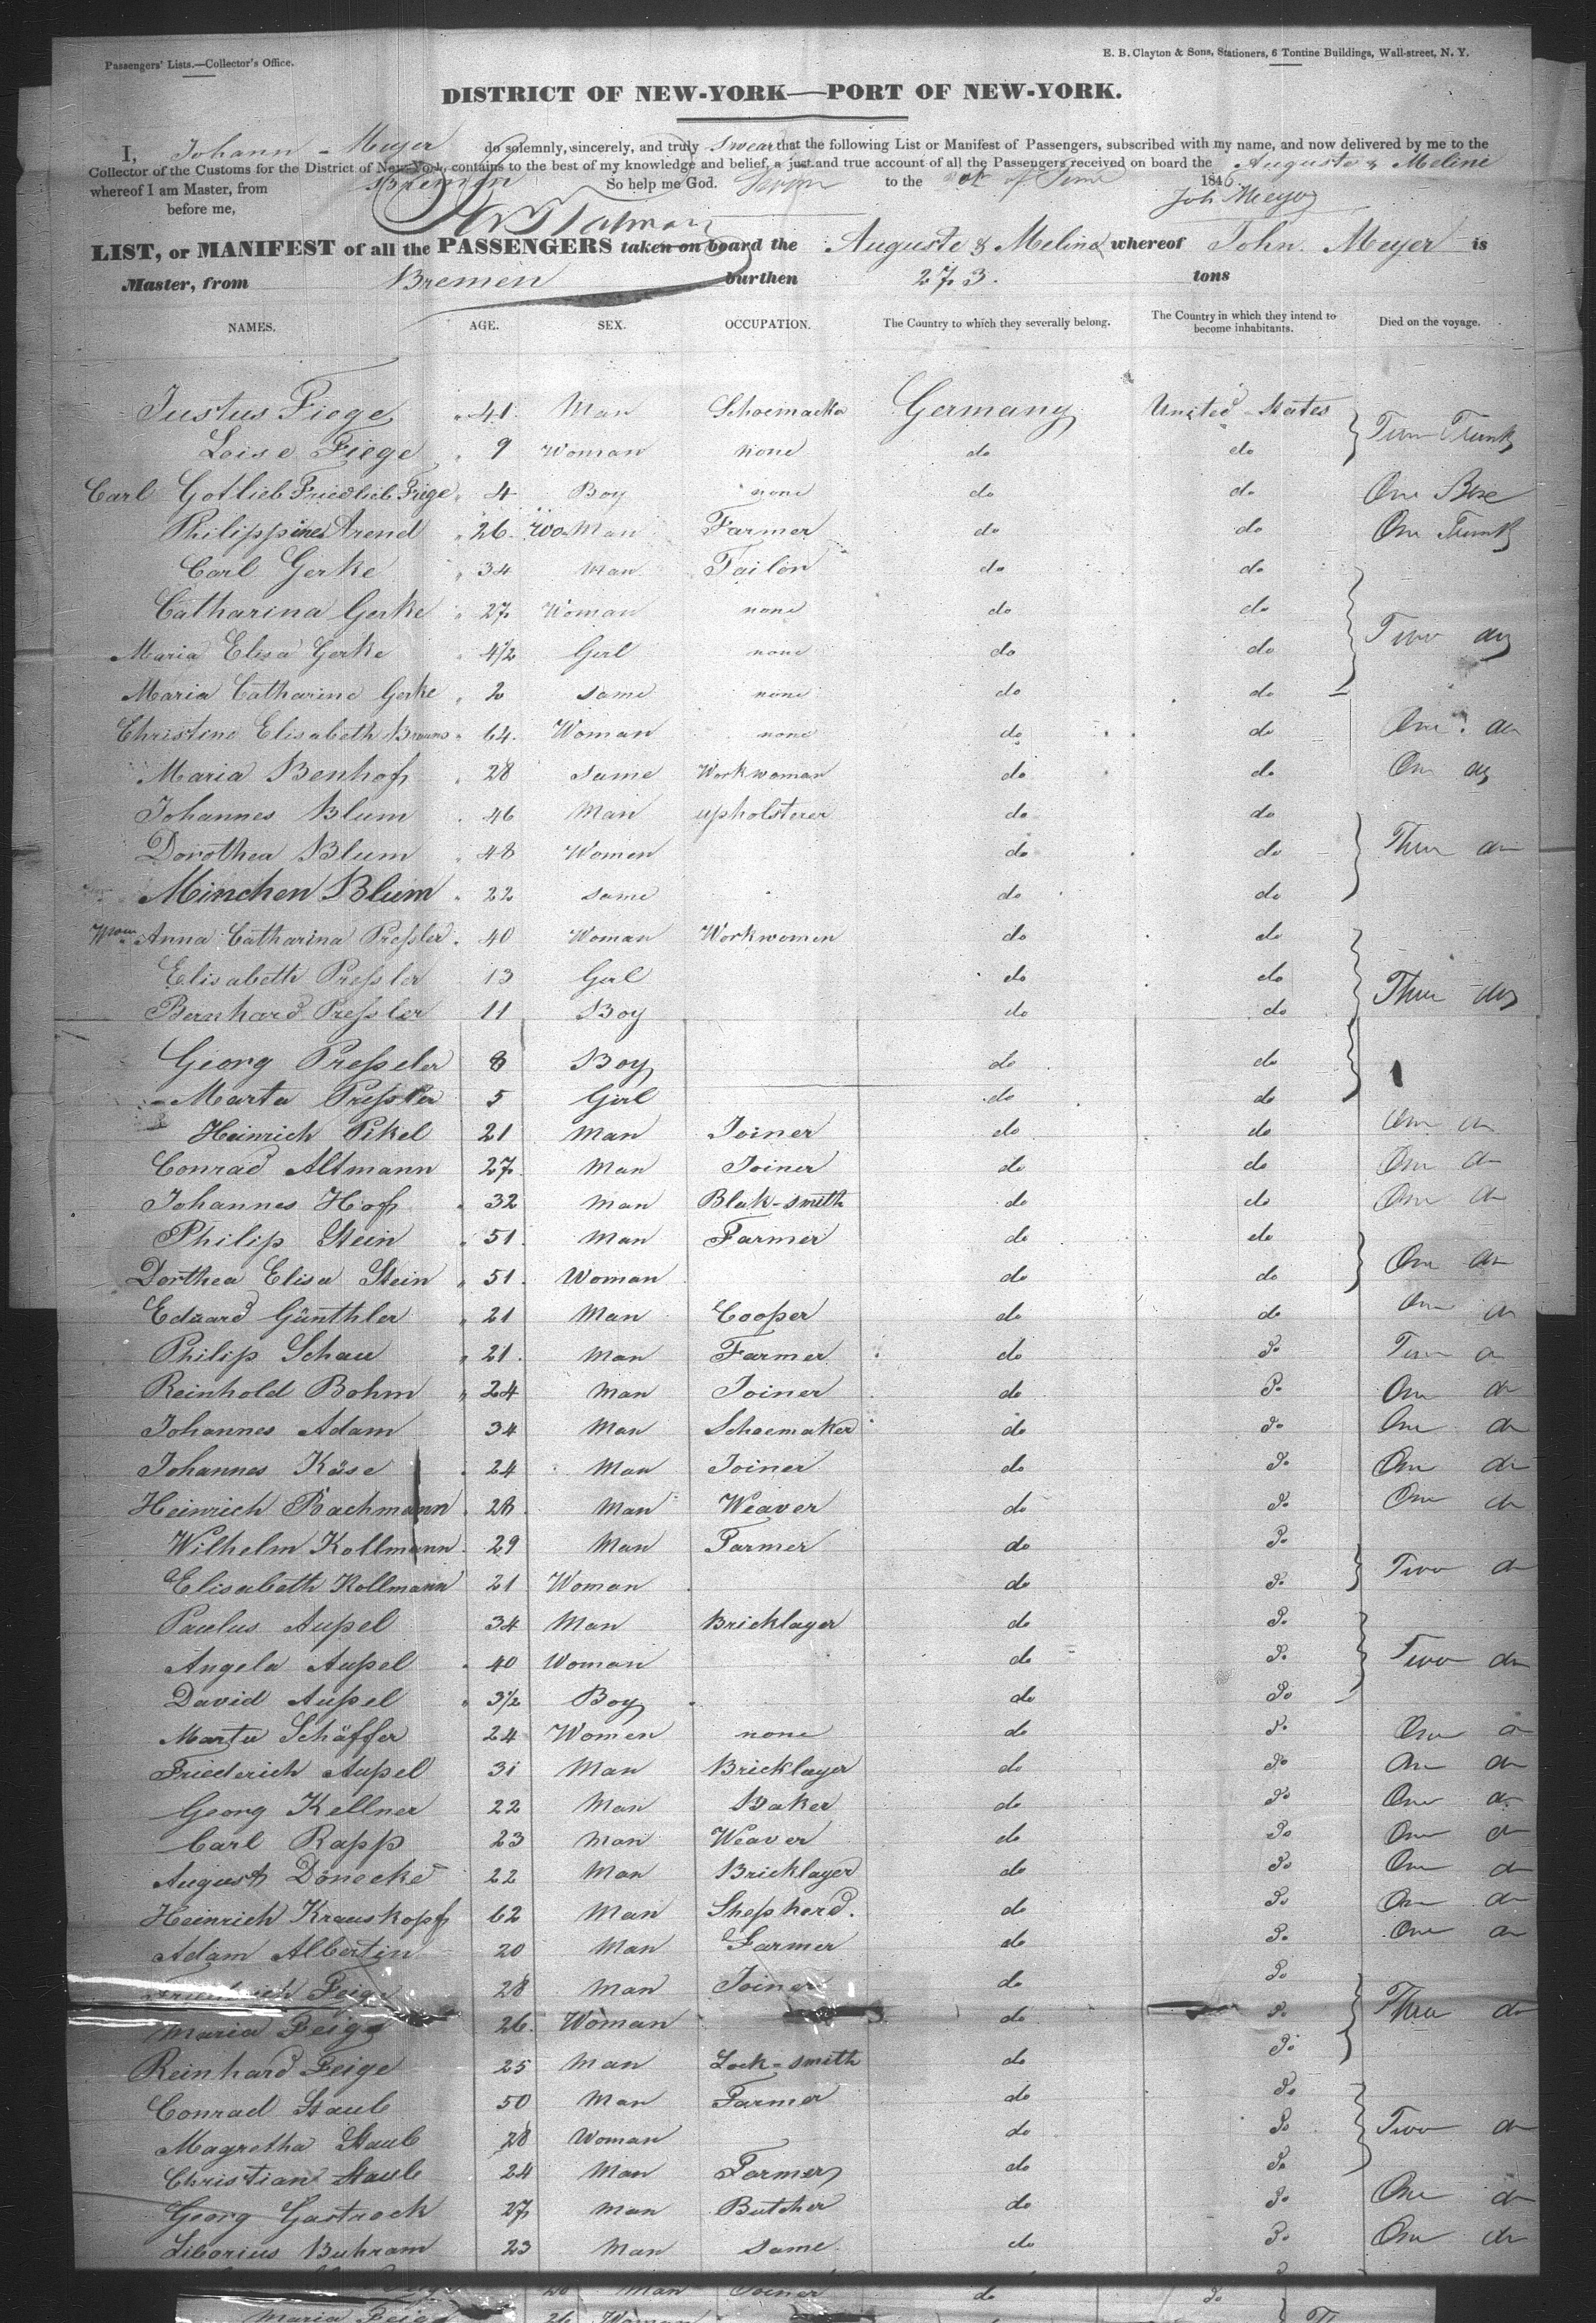 Passengers' Lists.—Collector's Office.
E. B. Clayton & Sons, Stationers, 6 Tontine Buildings, Wall-street, N. Y.
DISTRICT OF NEW-YORK—PORT OF NEW-YORK.
I, Johann Meyer do solemnly, sincerely, and truly swear that the following List or Manifest of Passengers, subscribed with my name, and now delivered by me to the
Collector of the Customs for the District of New-York, contains to the best of my knowledge and belief, a just and true account of all the Passengers received on board the Auguste & Meline
whereof I am Master, from Bremen So help me God. Sworn to the of June 1846
before me, Joh Meyer
LIST, or MANIFEST of all the PASSENGERS taken on board the Auguste & Melina whereof John. Meyer is
Master, from Bremen burthen 273. tons
NAMES. AGE. SEX. OCCUPATION. The Country to which they severally belong. The Country in which they intend to become inhabitants. Died on the voyage.
Justus Fiege 41 Man Schoemacker Germany United States
Loise Fiege 9 Woman none do do Two Trunks
Carl Gotlieb Friedlieb Frige 4 Boy none do do One Box
Philippines Arend 26 Woo Man Farmer do do One Trunk
Carl Gerke 34 Man Tailor do do
Catharina Gerke 27 Woman none do do
Maria Elisa Gerke 4½ Girl none do do Two do
Maria Catharine Gerke 2 same none do do
Christine Elisabeth Bruns 64 Woman none do do One do
Maria Benhof 28 same Workwoman do do One do
Johannes Blum 46 Man upholsterer do do
Dorothea Blum 48 Women do do Three do
Minchen Blum 22 same do do
Anna Catharina Pressler 40 Woman Workwomen do do
Elisabeth Pressler 13 Girl do do
Bernhard Pressler 11 Boy do do Three do
Georg Presseler 8 Boy do do
Marta Pressler 5 Girl do do
Heinrich Pikel 21 Man Joiner do do One do
Conrad Altmann 27 Man Joiner do do One do
Johannes Hof 32 Man Blak-smith do do One do
Philip Stein 51 Man Farmer do do
Dorthea Elisa Stein 51 Woman do do One do
Eduard Günthler 21 Man Cooper do do One do
Philip Schau 21 Man Farmer do Do Two do
Reinhold Bohm 24 Man Joiner do Do One do
Johannes Adam 34 Man Schoemaker do Do One do
Johannes Käse 24 Man Joiner do Do One do
Heinrich Bachmann 28 Man Weaver do Do One do
Wilhelm Kollmann 29 Man Farmer do Do
Elisabeth Kollmann 21 Woman do Do Two do
Paulus Aupel 34 Man Bricklayer do Do
Angela Aupel 40 Woman do Do Two do
David Aupel 3½ Boy do Do
Marta Schäffer 24 Women none do Do One do
Friederich Aupel 31 Man Bricklayer do Do One do
Georg Kellner 22 Man Baker do Do One do
Carl Rapp 23 Man Weaver do Do One do
August Dönecke 22 Man Bricklayer do Do One do
Heinrich Krauskopf 62 Man Shepherd. do Do One do
Adam Albertin 20 Man Farmer do Do One do
Friedrich Feige 28 Man Joiner do Do
Maria Feige 26 Woman do Do Three do
Reinhard Feige 25 Man Lock-smith do Do
Conrad Staub 50 Man Farmer do Do
Magretha Staub 28 Woman do Do Two do
Christian Staub 24 Man Farmer do Do
Georg Gastrock 27 Man Butcher do Do One do
Liborius Buhram 23 Man same do Do One do
Man Joiner do Do
Maria Feige 26 Woman